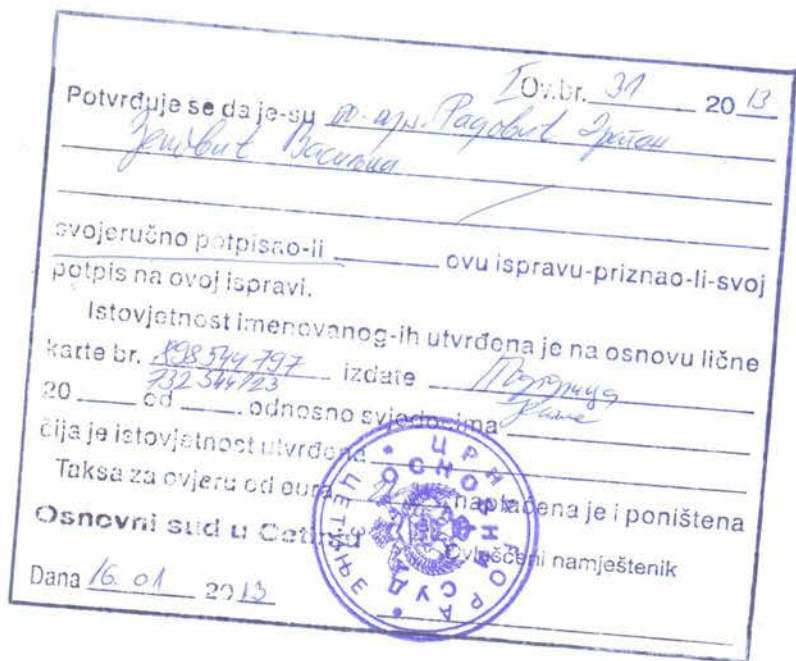 I Ov.br. 31 2013
Potvrđuje se da je-su Радовић Драган
Василија
svojeručno potpisao-li ovu ispravu-priznao-li-svoj
potpis na ovoj ispravi.
Istovjetnost imenovanog-ih utvrđena je na osnovu lične
karte br. 898544797 izdate Подгорица
732544123
20 od odnosno svjedocima
čija je istovjetnost utvrđena
Taksa za ovjeru od eura naplaćena je i poništena
Osnovni sud u Cetinju Ovlašćeni namještenik
Dana 16. 01 2013
ЦРНА ГОРА
ОСНОВНИ СУД
ЦЕТИЊЕ